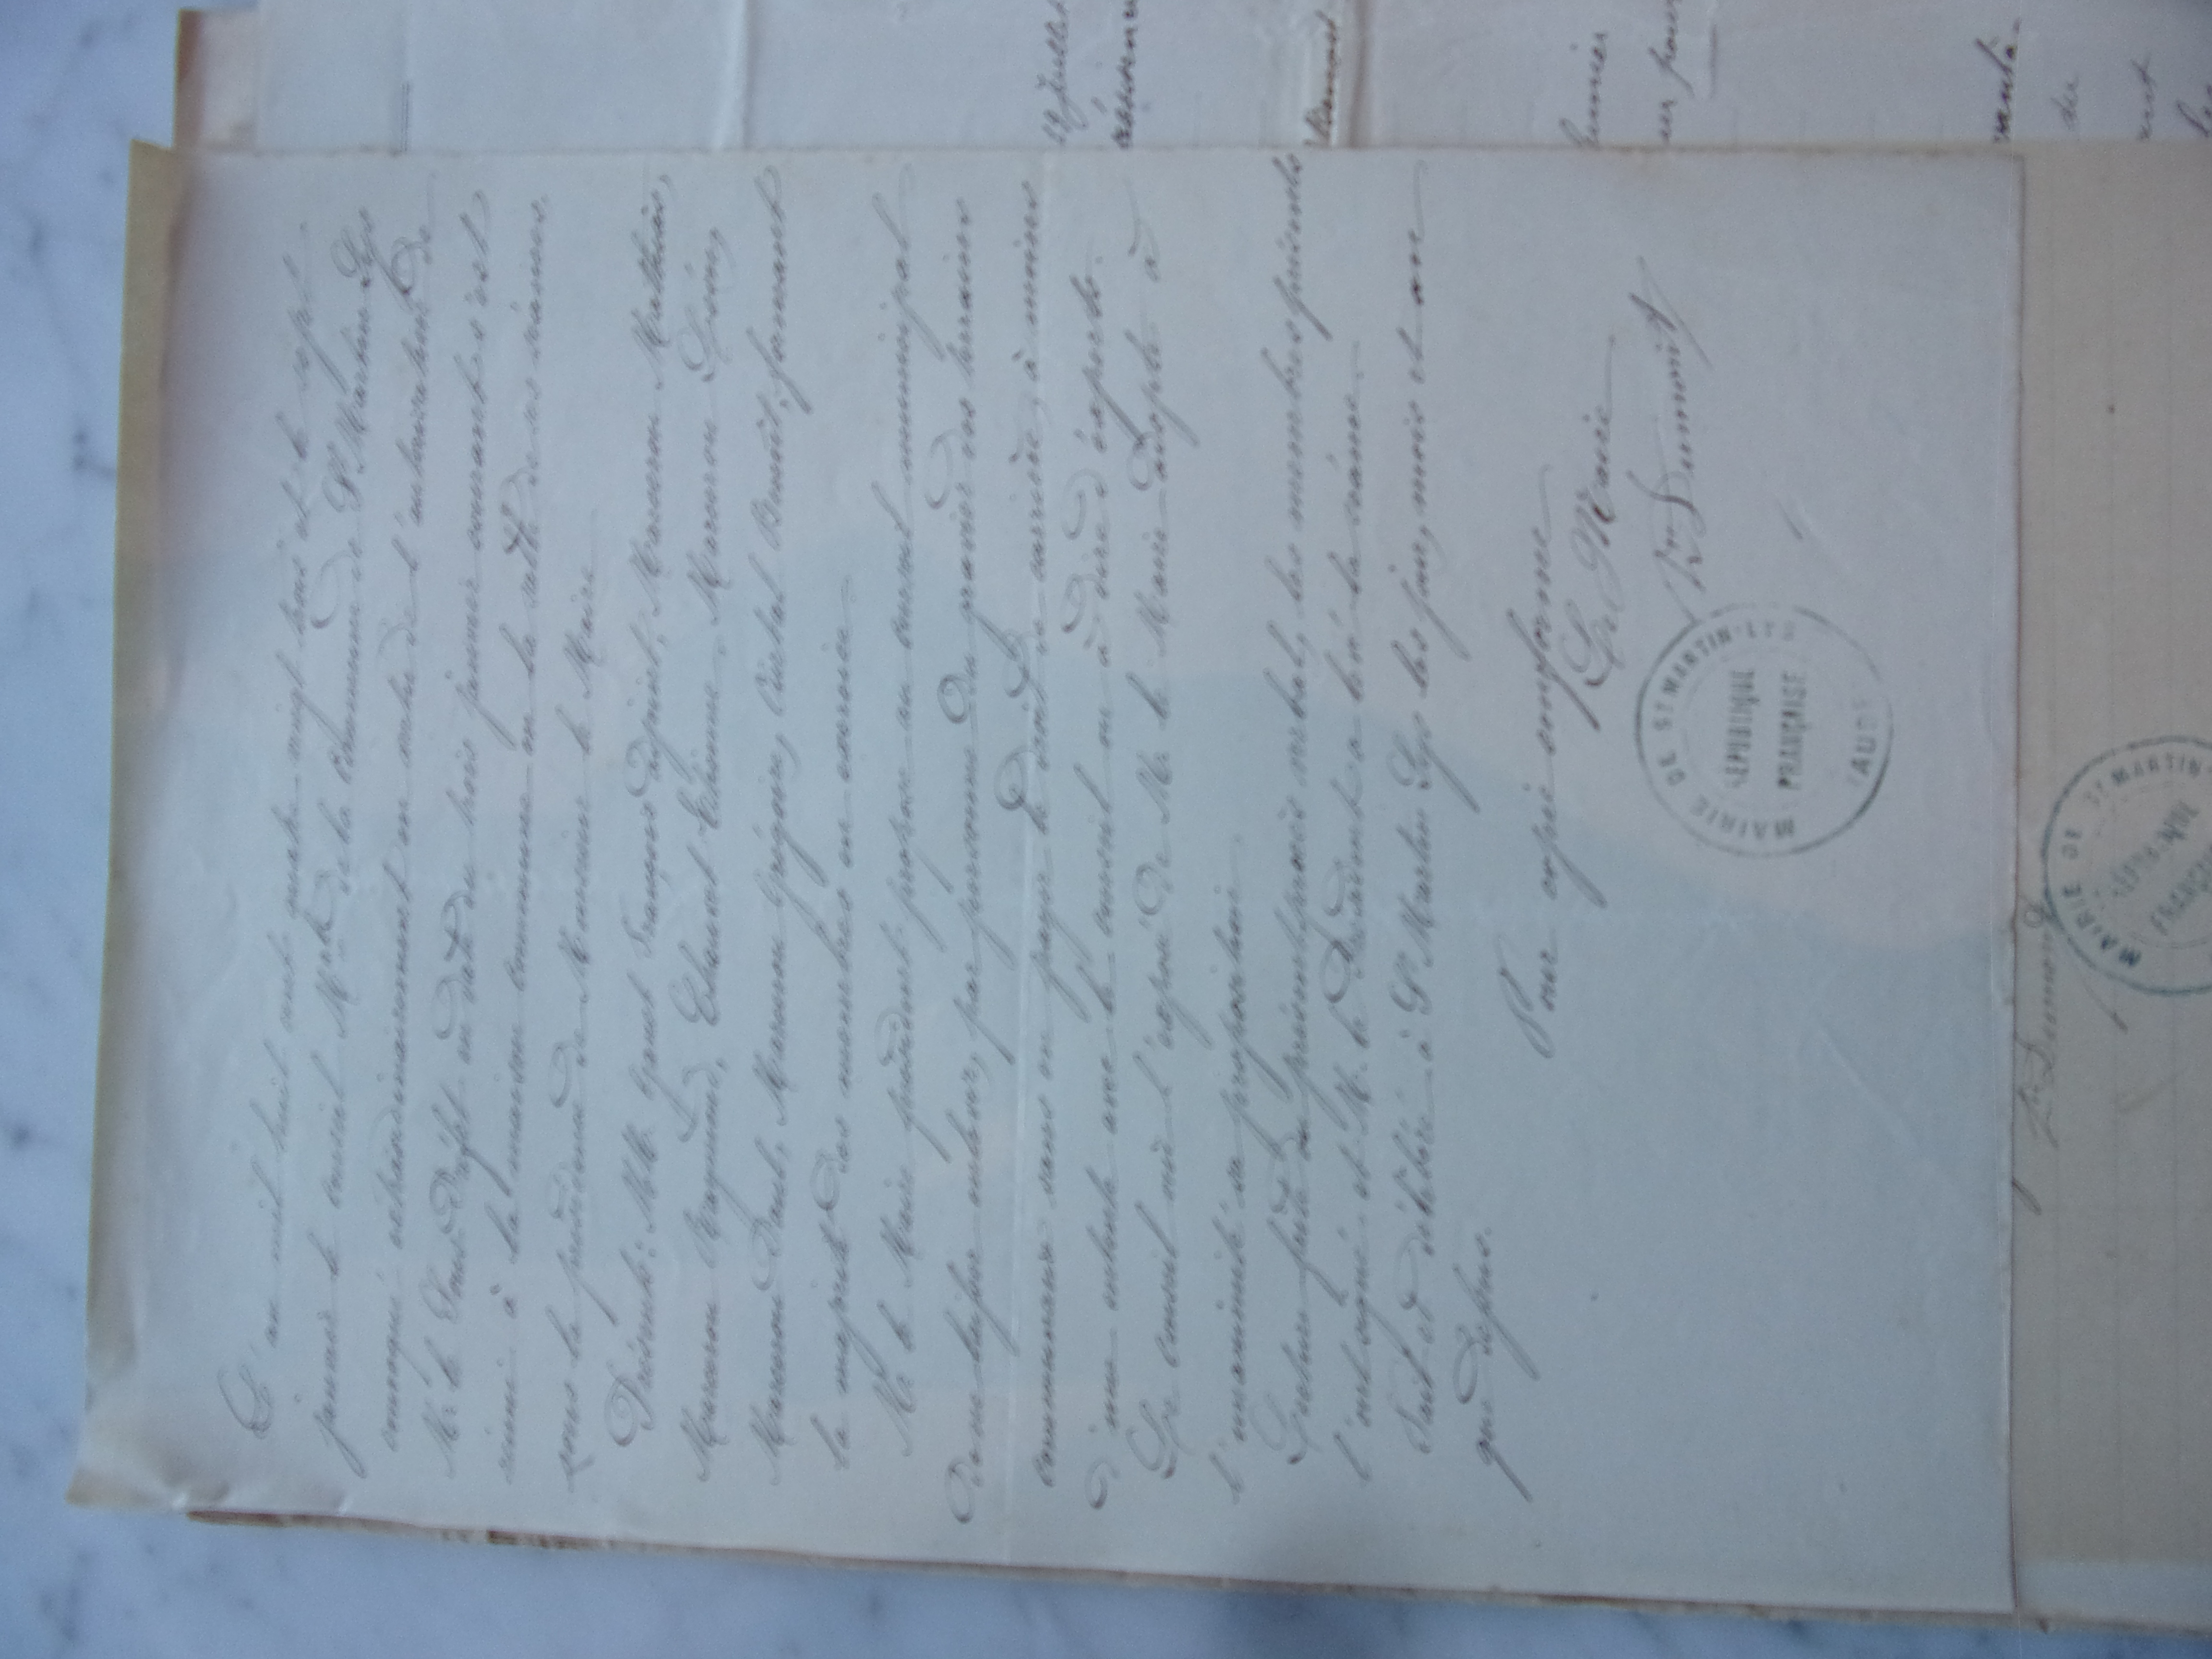 L'an mil huit cent quatre-vingt trois et le sept
janvier le conseil Mpal de la Commune de St Martin Lys
convoqué extraordinairement en vertu de l'autorisation de
Mr le Sous-Préfet en date du trois janvier courant s'est
réuni à la maison commune en la salle de ses séances,
sous la présidence de Monsieur le Maire
Présents: MM. François adjoint, Marcerou Mathias,
Marcerou Raymond, Chauvet Etienne, Marcerou Léon,
Marcerou Paul, Marcerou Grégoire, Benoît, formant
la majorité des membres en exercice
Mr le Maire président propose au conseil municipal
de ne laisser enlever, par personne du gravier des terrains
communaux sans en payer le droit de carrière, à moins
d'une entente avec le conseil ou à dire d'experts.
Le conseil ouï l'exposé de Mr le Maire adopte à
l'unanimité sa proposition.
Lecture faite du présent procès verbal, les membres présents
l'ont signé et M. le Président a levé la séance.
Fait et délibéré à St Martin Lys les jour, mois et an
que dessus.
Pour copie conforme
Le Maire
Dumont
MAIRIE DE ST MARTIN-LYS
REPUBLIQUE
FRANÇAISE
(AUDE)
19 Juillet
Benoit
pour
du
Dumont
MAIRIE DE ST MARTIN
REPUBLIQUE
FRANÇAISE